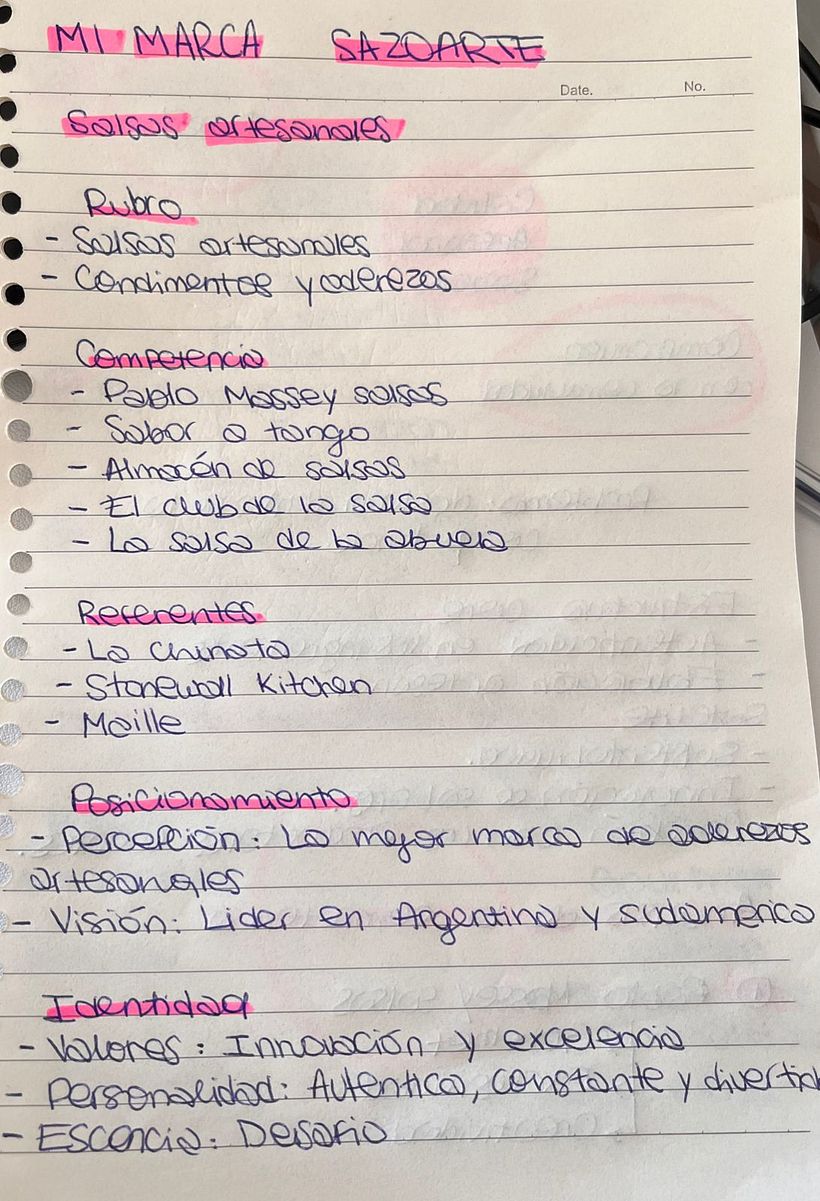 MI MARCA SAZOARTE
Date. No.
Salsas artesanales
Rubro
- Salsas artesanales
- Condimentos y aderezos
Competencia
- Pablo Massey salsas
- Sabor a tango
- Almacén de salsas
- El club de la salsa
- La salsa de la abuela
Referentes
- La chinata
- Stonewall Kitchen
- Maille
Posicionamiento
- Percepción: La mejor marca de aderezos
artesanales
- Visión: Lider en Argentina y sudamerica
Identidad
- Valores: Innovación y excelencia
- Personalidad: Autentica, constante y divertid
- Escencia: Desafio